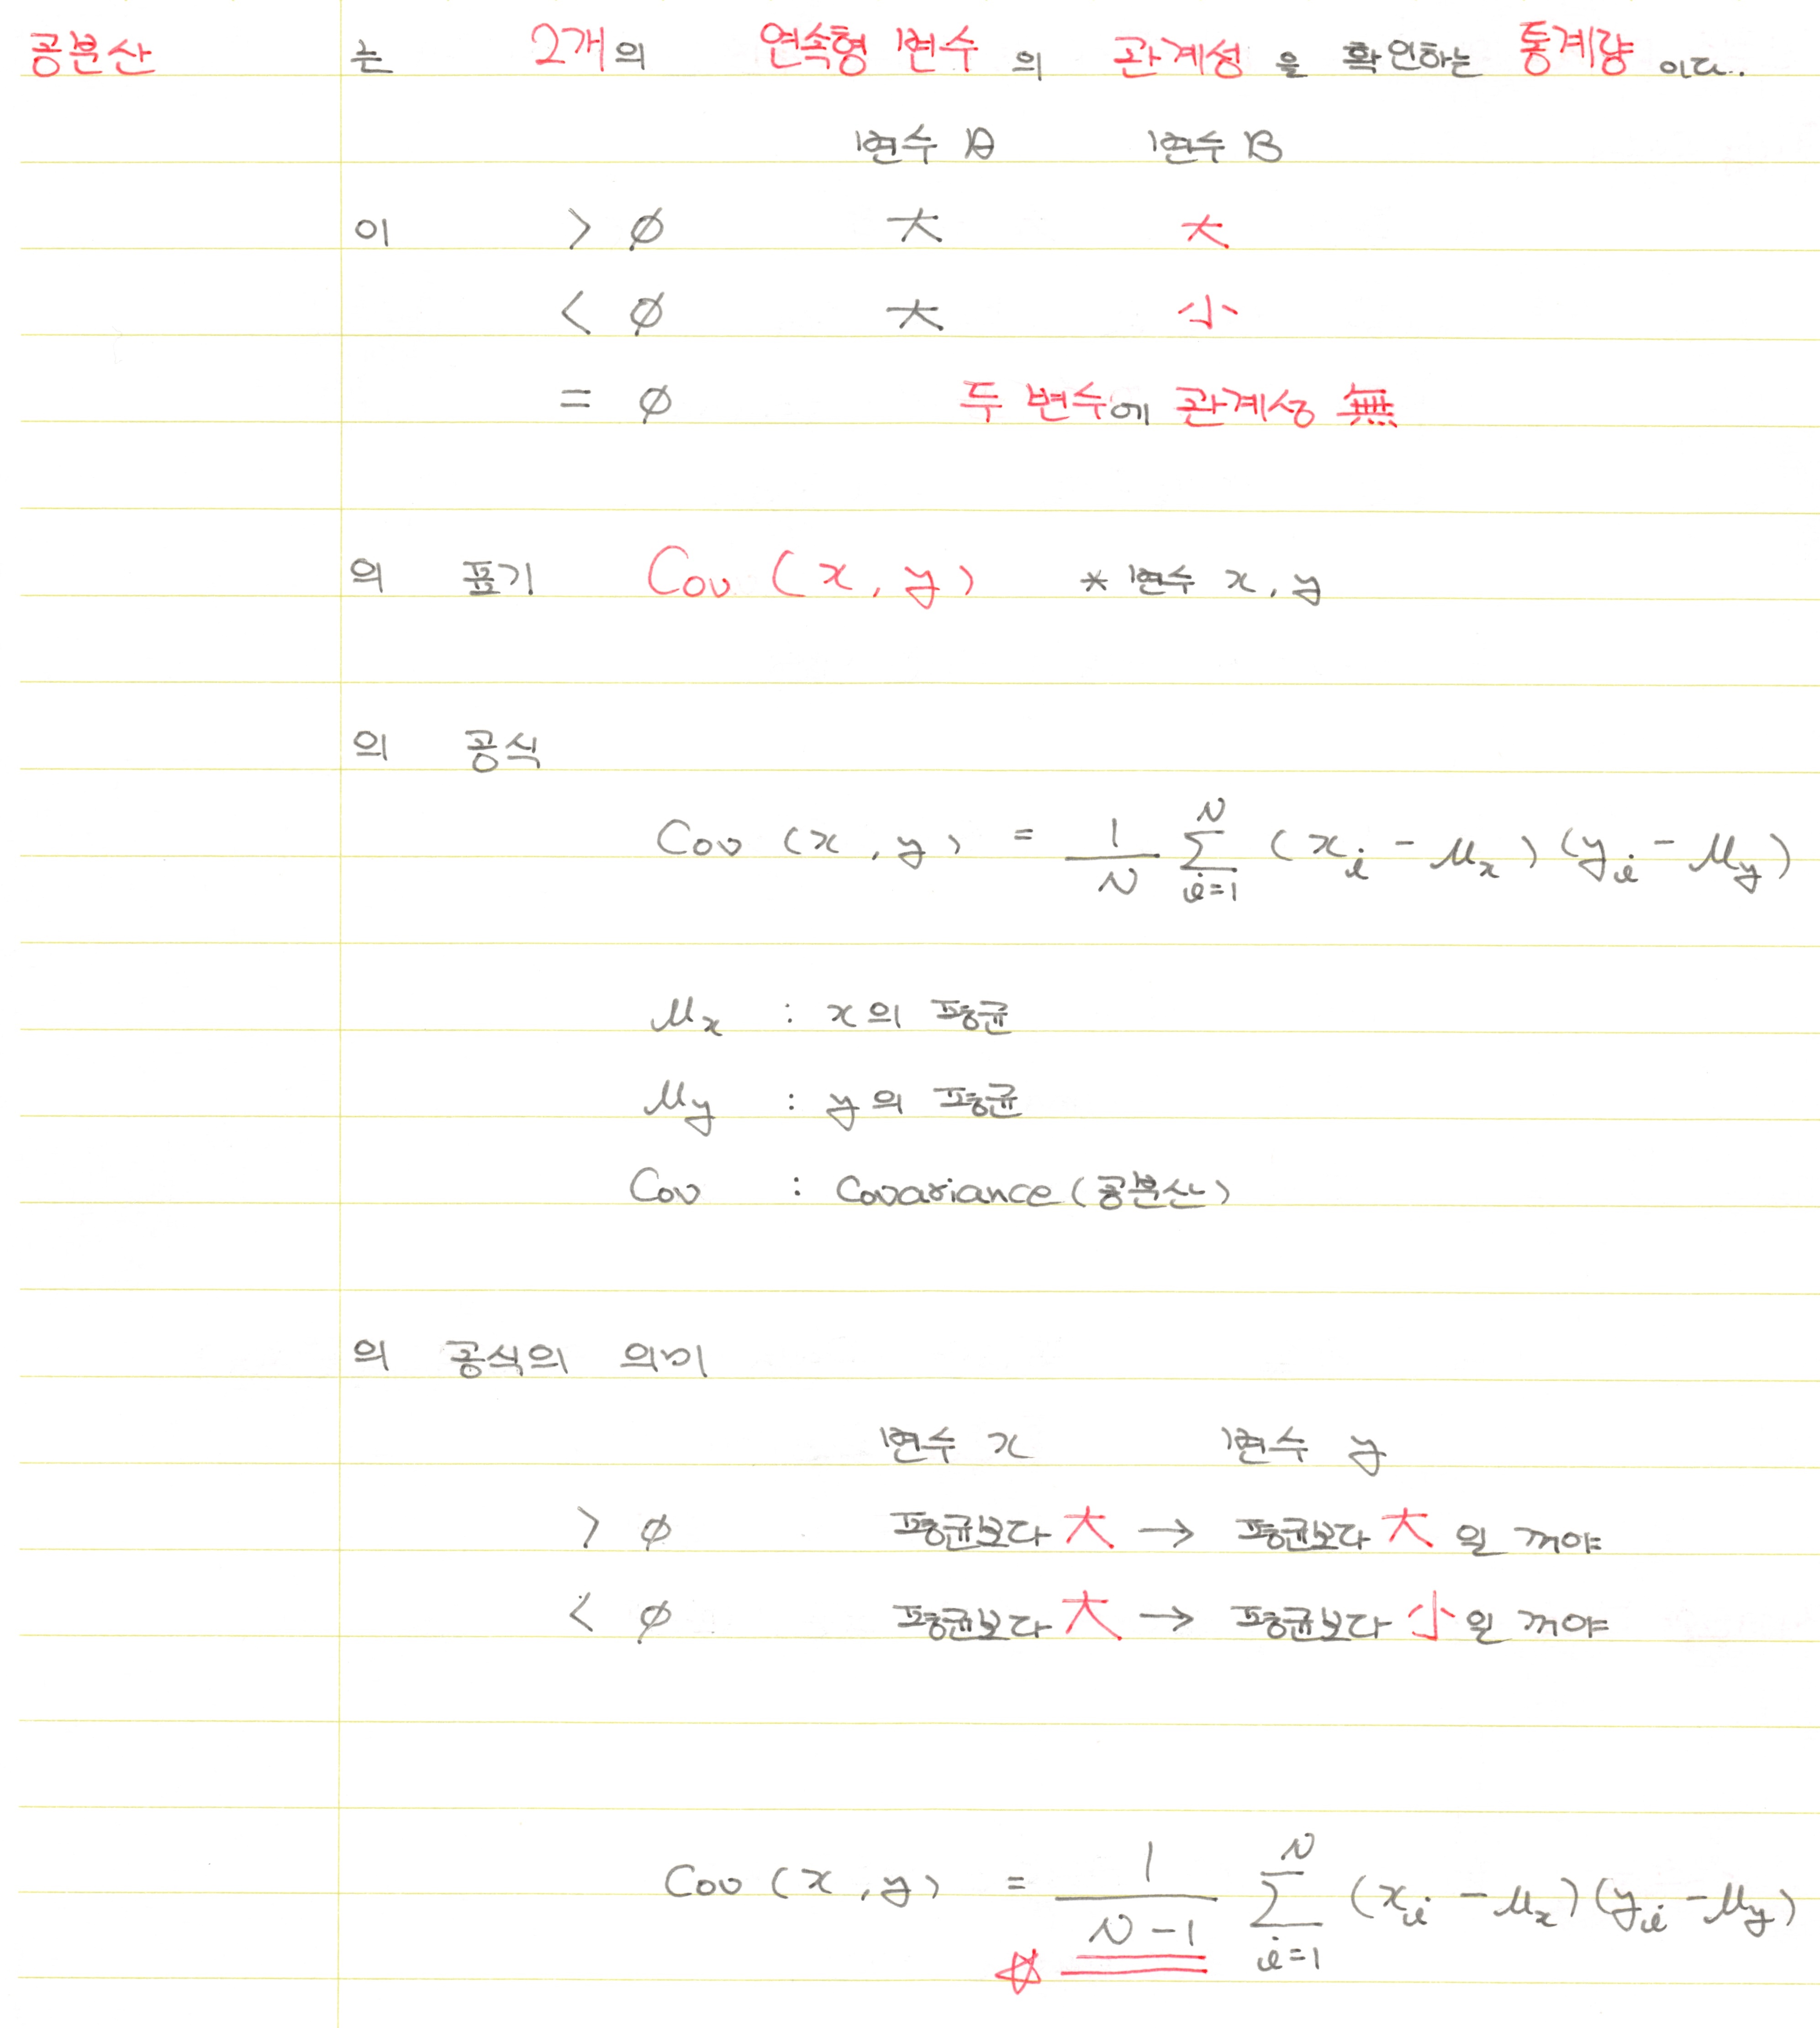 공분산 는 2개의 연속형 변수의 관계성을 확인하는 통계량이다.
변수 A 변수 B
이 > ∅ 大 大
< ∅ 大 小
= ∅ 두 변수에 관계성 無
의 표기 Cov (x, y) * 변수 x, y
의 공식
Cov (x, y) = 1/N Σ_{i=1}^{N} (x_i - μ_x)(y_i - μ_y)
μ_x : x의 평균
μ_y : y의 평균
Cov : Covariance(공분산)
의 공식의 의미
변수 x 변수 y
> ∅ 평균보다 大 → 평균보다 大 일 꺼야
< ∅ 평균보다 大 → 평균보다 小 일 꺼야
Cov (x, y) = 1/(N-1) Σ_{i=1}^{N} (x_i - μ_x)(y_i - μ_y)